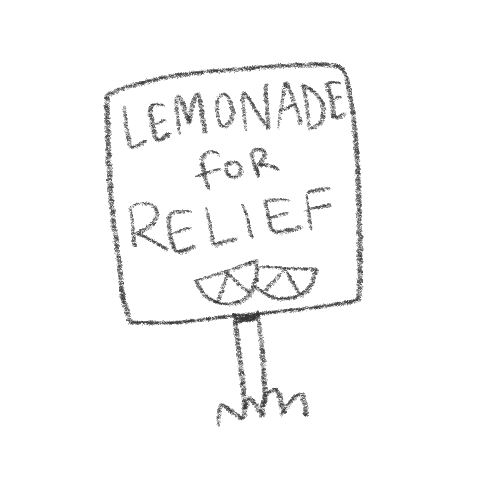 LEMONADE
foR
RELIEF